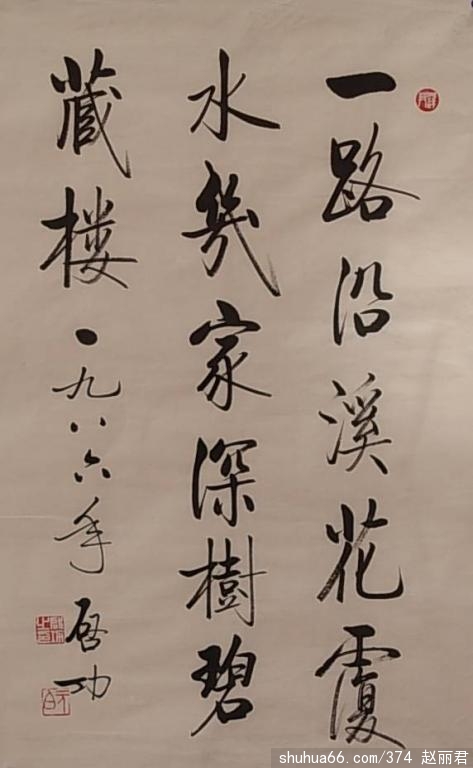 一路沿溪花覆
水幾家深樹碧
藏楼 一九八六年 启功
shuhua66.com/374 赵丽君